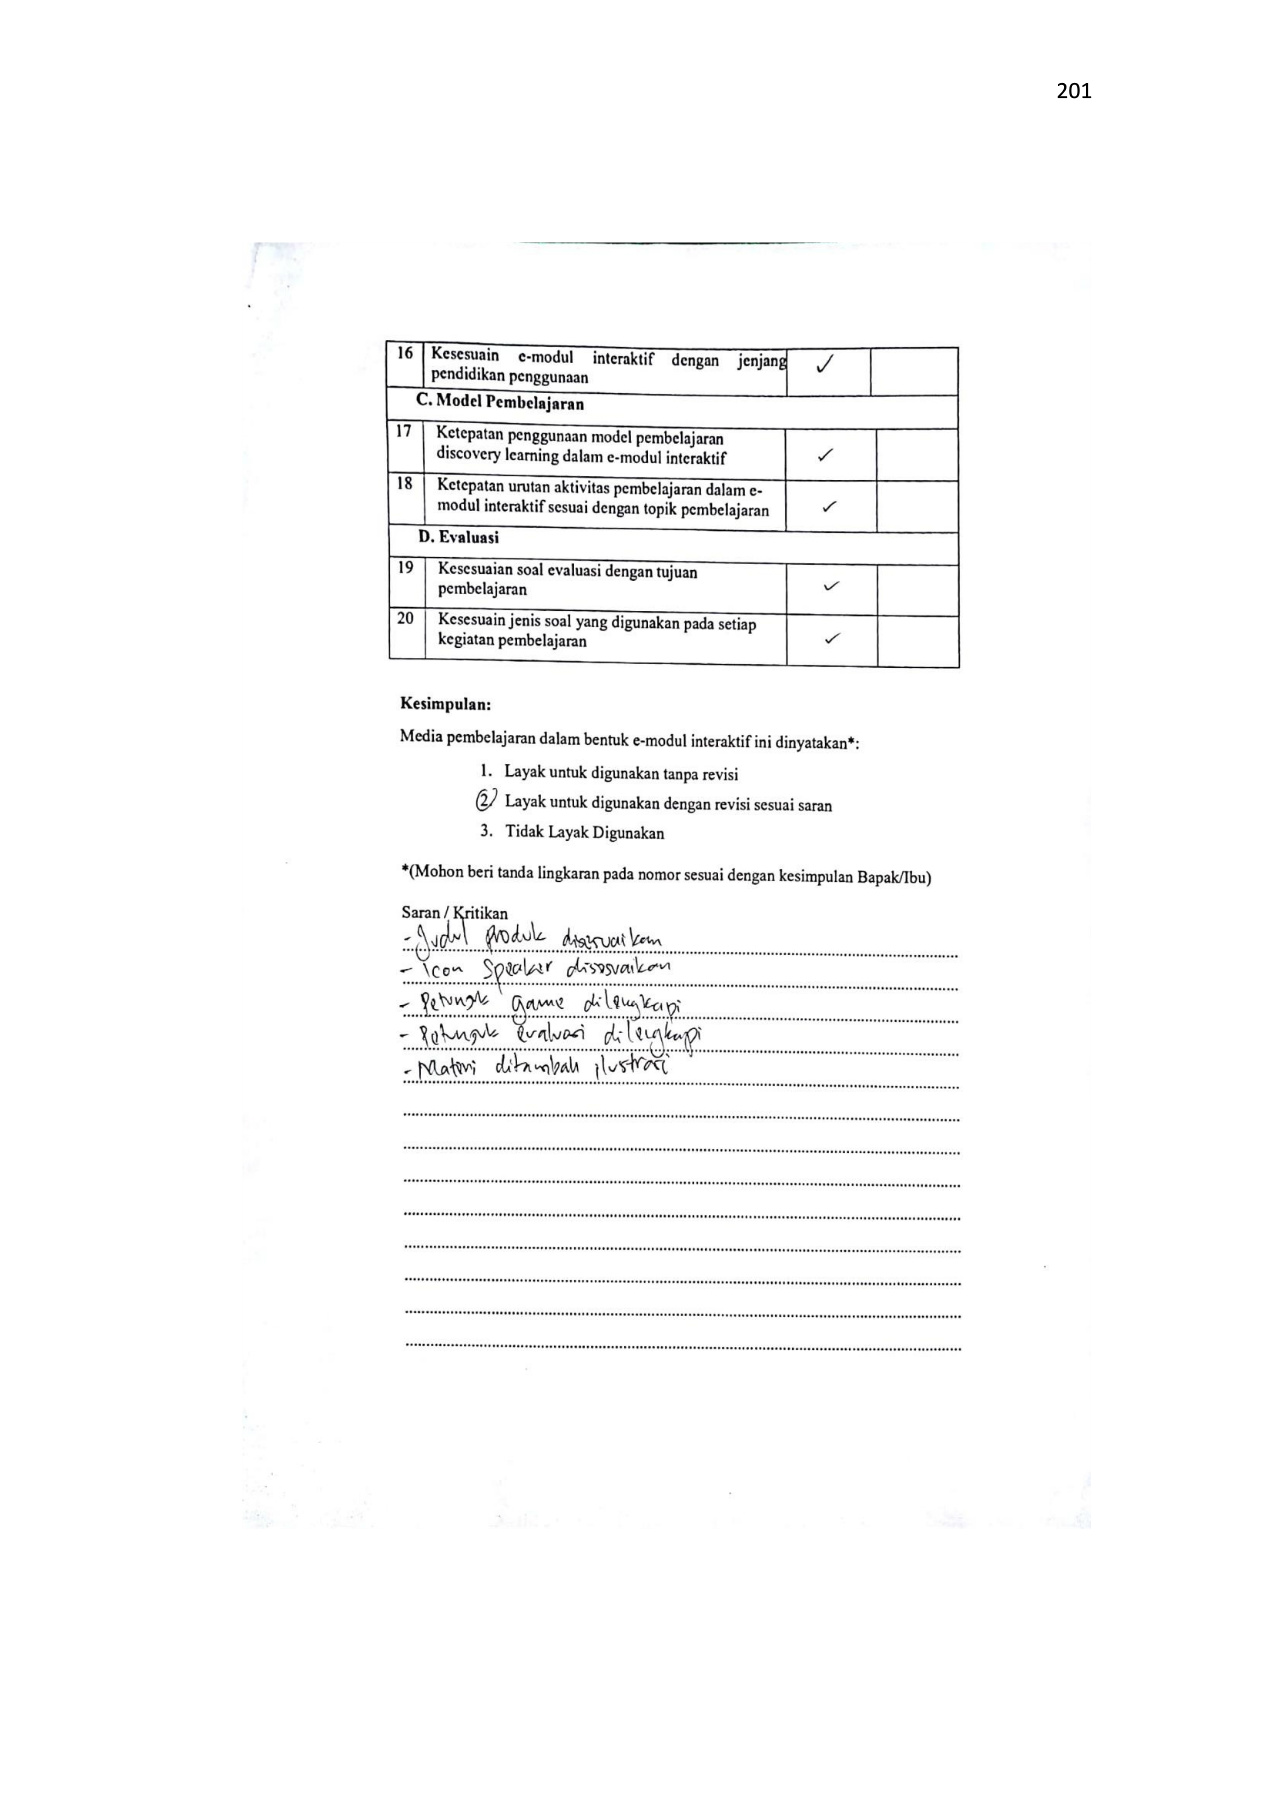 201
16 Kesesuain e-modul interaktif dengan jenjang
pendidikan penggunaan ✓
C. Model Pembelajaran
17 Ketepatan penggunaan model pembelajaran
discovery learning dalam e-modul interaktif ✓
18 Ketepatan urutan aktivitas pembelajaran dalam e-
modul interaktif sesuai dengan topik pembelajaran ✓
D. Evaluasi
19 Kesesuaian soal evaluasi dengan tujuan
pembelajaran ✓
20 Kesesuain jenis soal yang digunakan pada setiap
kegiatan pembelajaran ✓
Kesimpulan:
Media pembelajaran dalam bentuk e-modul interaktif ini dinyatakan*:
1. Layak untuk digunakan tanpa revisi
2. Layak untuk digunakan dengan revisi sesuai saran
3. Tidak Layak Digunakan
*(Mohon beri tanda lingkaran pada nomor sesuai dengan kesimpulan Bapak/Ibu)
Saran / Kritikan
- Judul produk disesuaikan
- Icon Speaker disesuaikan
- Petunjuk game dilengkapi
- Petunjuk evaluasi dilengkapi
- Materi ditambah ilustrasi